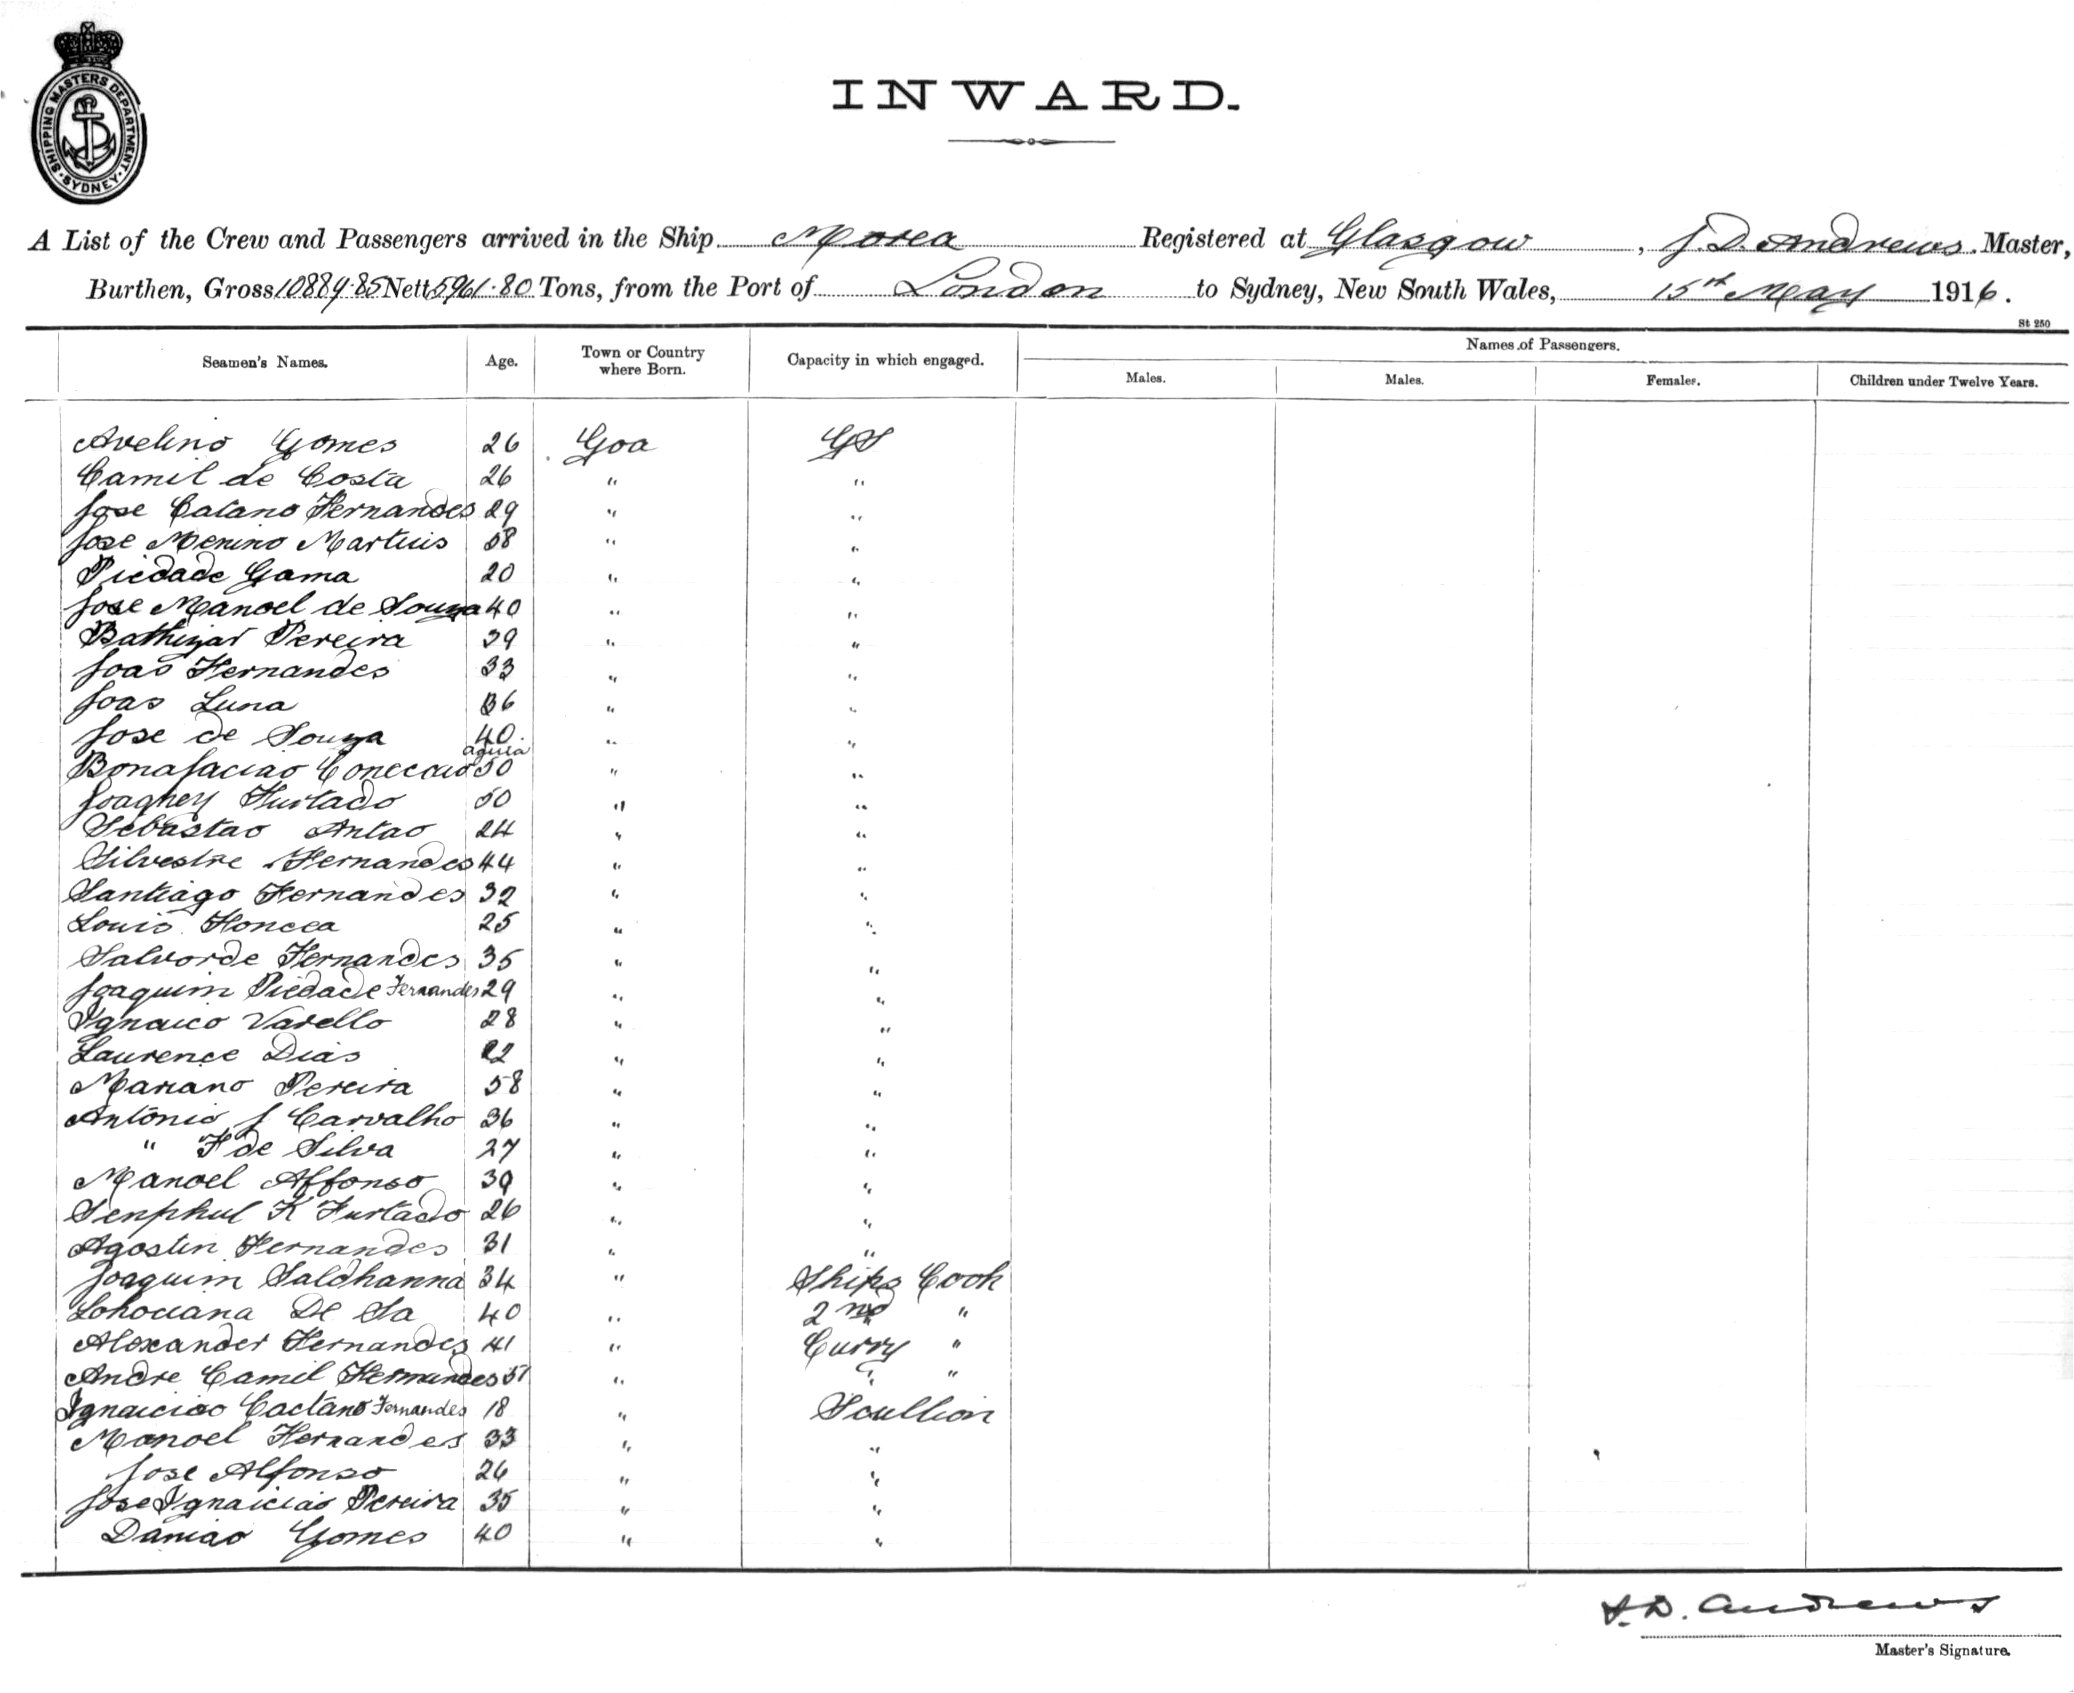 SHIPPING MASTERS DEPARTMENT · SYDNEY ·
INWARD.
A List of the Crew and Passengers arrived in the Ship Morea Registered at Glasgow, J. D. Andrews Master,
Burthen, Gross 10889·85 Nett 5961·80 Tons, from the Port of London to Sydney, New South Wales, 15th May 1916.
St 250
Seamen's Names. Age. Town or Country where Born. Capacity in which engaged. Names of Passengers.
Males. Males. Females. Children under Twelve Years.
Avelino Gomes 26 Goa GS
Camil de Costa 26 " "
Jose Catano Fernandes 29 " "
Jose Menino Martins 58 " "
Piedade Gama 20 " "
Jose Manoel de Souza 40 " "
Pereira 39 " "
Joao Fernandes 33 " "
Joas Luna 36 " "
Jose de Souza 40 " "
aguia
Bonafaciao 50 " "
Furtado 50 " "
Sebastao Antao 24 " "
Silvestre Fernandes 44 " "
Santiago Fernandes 32 " "
Louis 25 " "
Salvorde Fernandes 35 " "
Joaquim Piedade Fernandes 29 " "
Ignaico Varello 28 " "
Laurence Dias 22 " "
Mariano Pereira 58 " "
Antonio J Carvalho 36 " "
" F de Silva 27 " "
Manoel Affonso 39 " "
K Furtado 26 " "
Agostin Fernandes 31 " "
Joaquim Saldhanna 34 " Ships Cook
De Sa 40 " 2nd "
Alexander Fernandes 41 " Curry "
Andre Camil Fernandes 51 " " "
Ignaiciao Caetano Fernandes 18 " Scullion
Manoel Fernandes 33 " "
Jose Alfonso 26 " "
Jose Ignaiciao Pereira 35 " "
Daniao Gomes 40 " "
J. D. Andrews
Master's Signature.